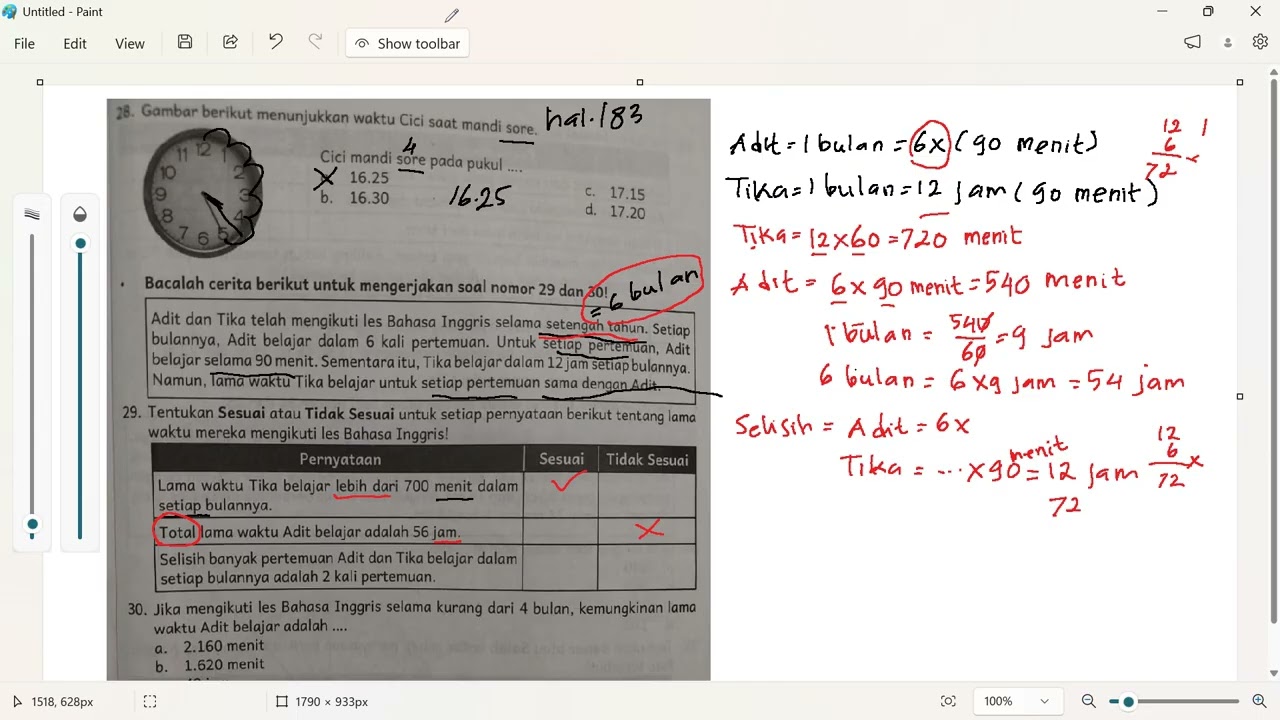 Untitled - Paint
File Edit View Show toolbar
28. Gambar berikut menunjukkan waktu Cici saat mandi sore. hal.183
12 1 2 3 4 5 6 7 8 9 10 11
4
Cici mandi sore pada pukul ....
16.25
b. 16.30
16.25
c. 17.15
d. 17.20
= 6 bulan
Bacalah cerita berikut untuk mengerjakan soal nomor 29 dan 30!
Adit dan Tika telah mengikuti les Bahasa Inggris selama setengah tahun. Setiap
bulannya, Adit belajar dalam 6 kali pertemuan. Untuk setiap pertemuan, Adit
belajar selama 90 menit. Sementara itu, Tika belajar dalam 12 jam setiap bulannya.
Namun, lama waktu Tika belajar untuk setiap pertemuan sama dengan Adit.
29. Tentukan Sesuai atau Tidak Sesuai untuk setiap pernyataan berikut tentang lama
waktu mereka mengikuti les Bahasa Inggris!
Pernyataan Sesuai Tidak Sesuai
Lama waktu Tika belajar lebih dari 700 menit dalam
setiap bulannya.
Total lama waktu Adit belajar adalah 56 jam.
Selisih banyak pertemuan Adit dan Tika belajar dalam
setiap bulannya adalah 2 kali pertemuan.
30. Jika mengikuti les Bahasa Inggris selama kurang dari 4 bulan, kemungkinan lama
waktu Adit belajar adalah ....
a. 2.160 menit
b. 1.620 menit
Adit = 1 bulan = 6x (90 menit)
Tika = 1 bulan = 12 jam (90 menit)
12 1
6
72 x
Tika = 12 x 60 = 720 menit
Adit = 6 x 90 menit = 540 menit
1 bulan = 540/60 = 9 jam
6 bulan = 6 x 9 jam = 54 jam
Selisih = Adit = 6x
menit
Tika = ... x 90 = 12 jam
72
12
6 x
72
1518, 628px
1790 × 933px
100%